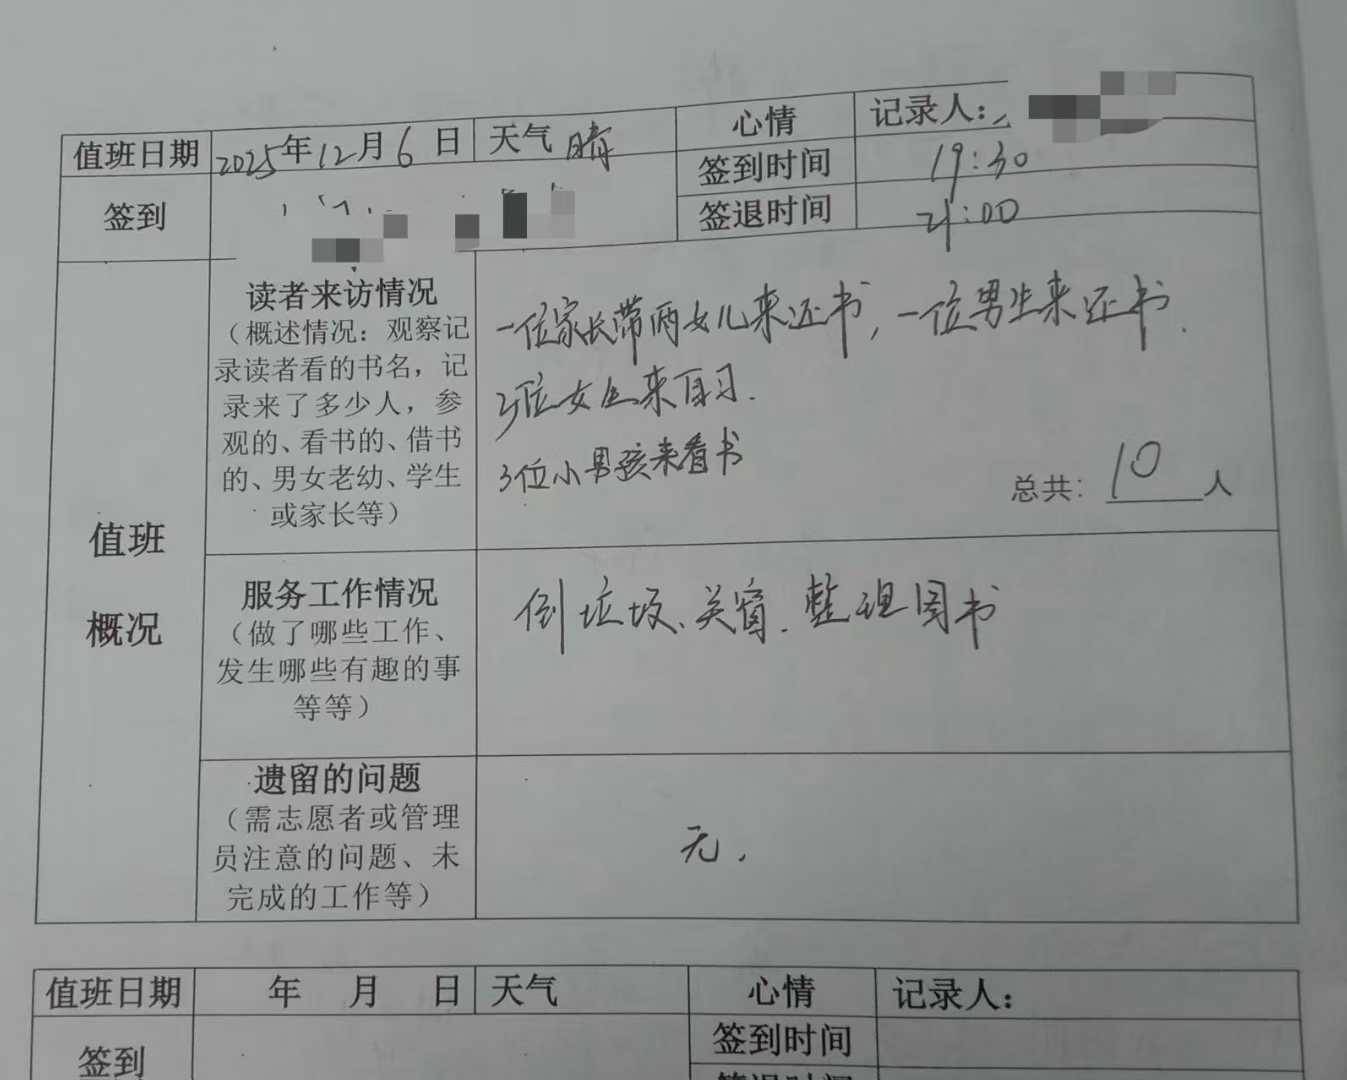 值班日期 2025年12月6日 天气 晴 心情 记录人：
签到 签到时间 19:30
签退时间 21:00
值班概况
读者来访情况
（概述情况：观察记
录读者看的书名，记
录来了多少人，参
观的、看书的、借书
的、男女老幼、学生
或家长等）
一位家长带两女儿来还书，一位男生来还书．
3位女生来自习．
3位小男孩来看书
总共：10人
服务工作情况
（做了哪些工作、
发生哪些有趣的事
等等）
倒垃圾、关窗．整理图书
遗留的问题
（需志愿者或管理
员注意的问题、未
完成的工作等）
无，
值班日期 年 月 日 天气 心情 记录人：
签到 签到时间
签退时间